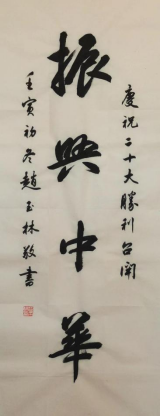 慶祝二十大勝利召開
振興中華
壬寅初冬趙玉林敬書